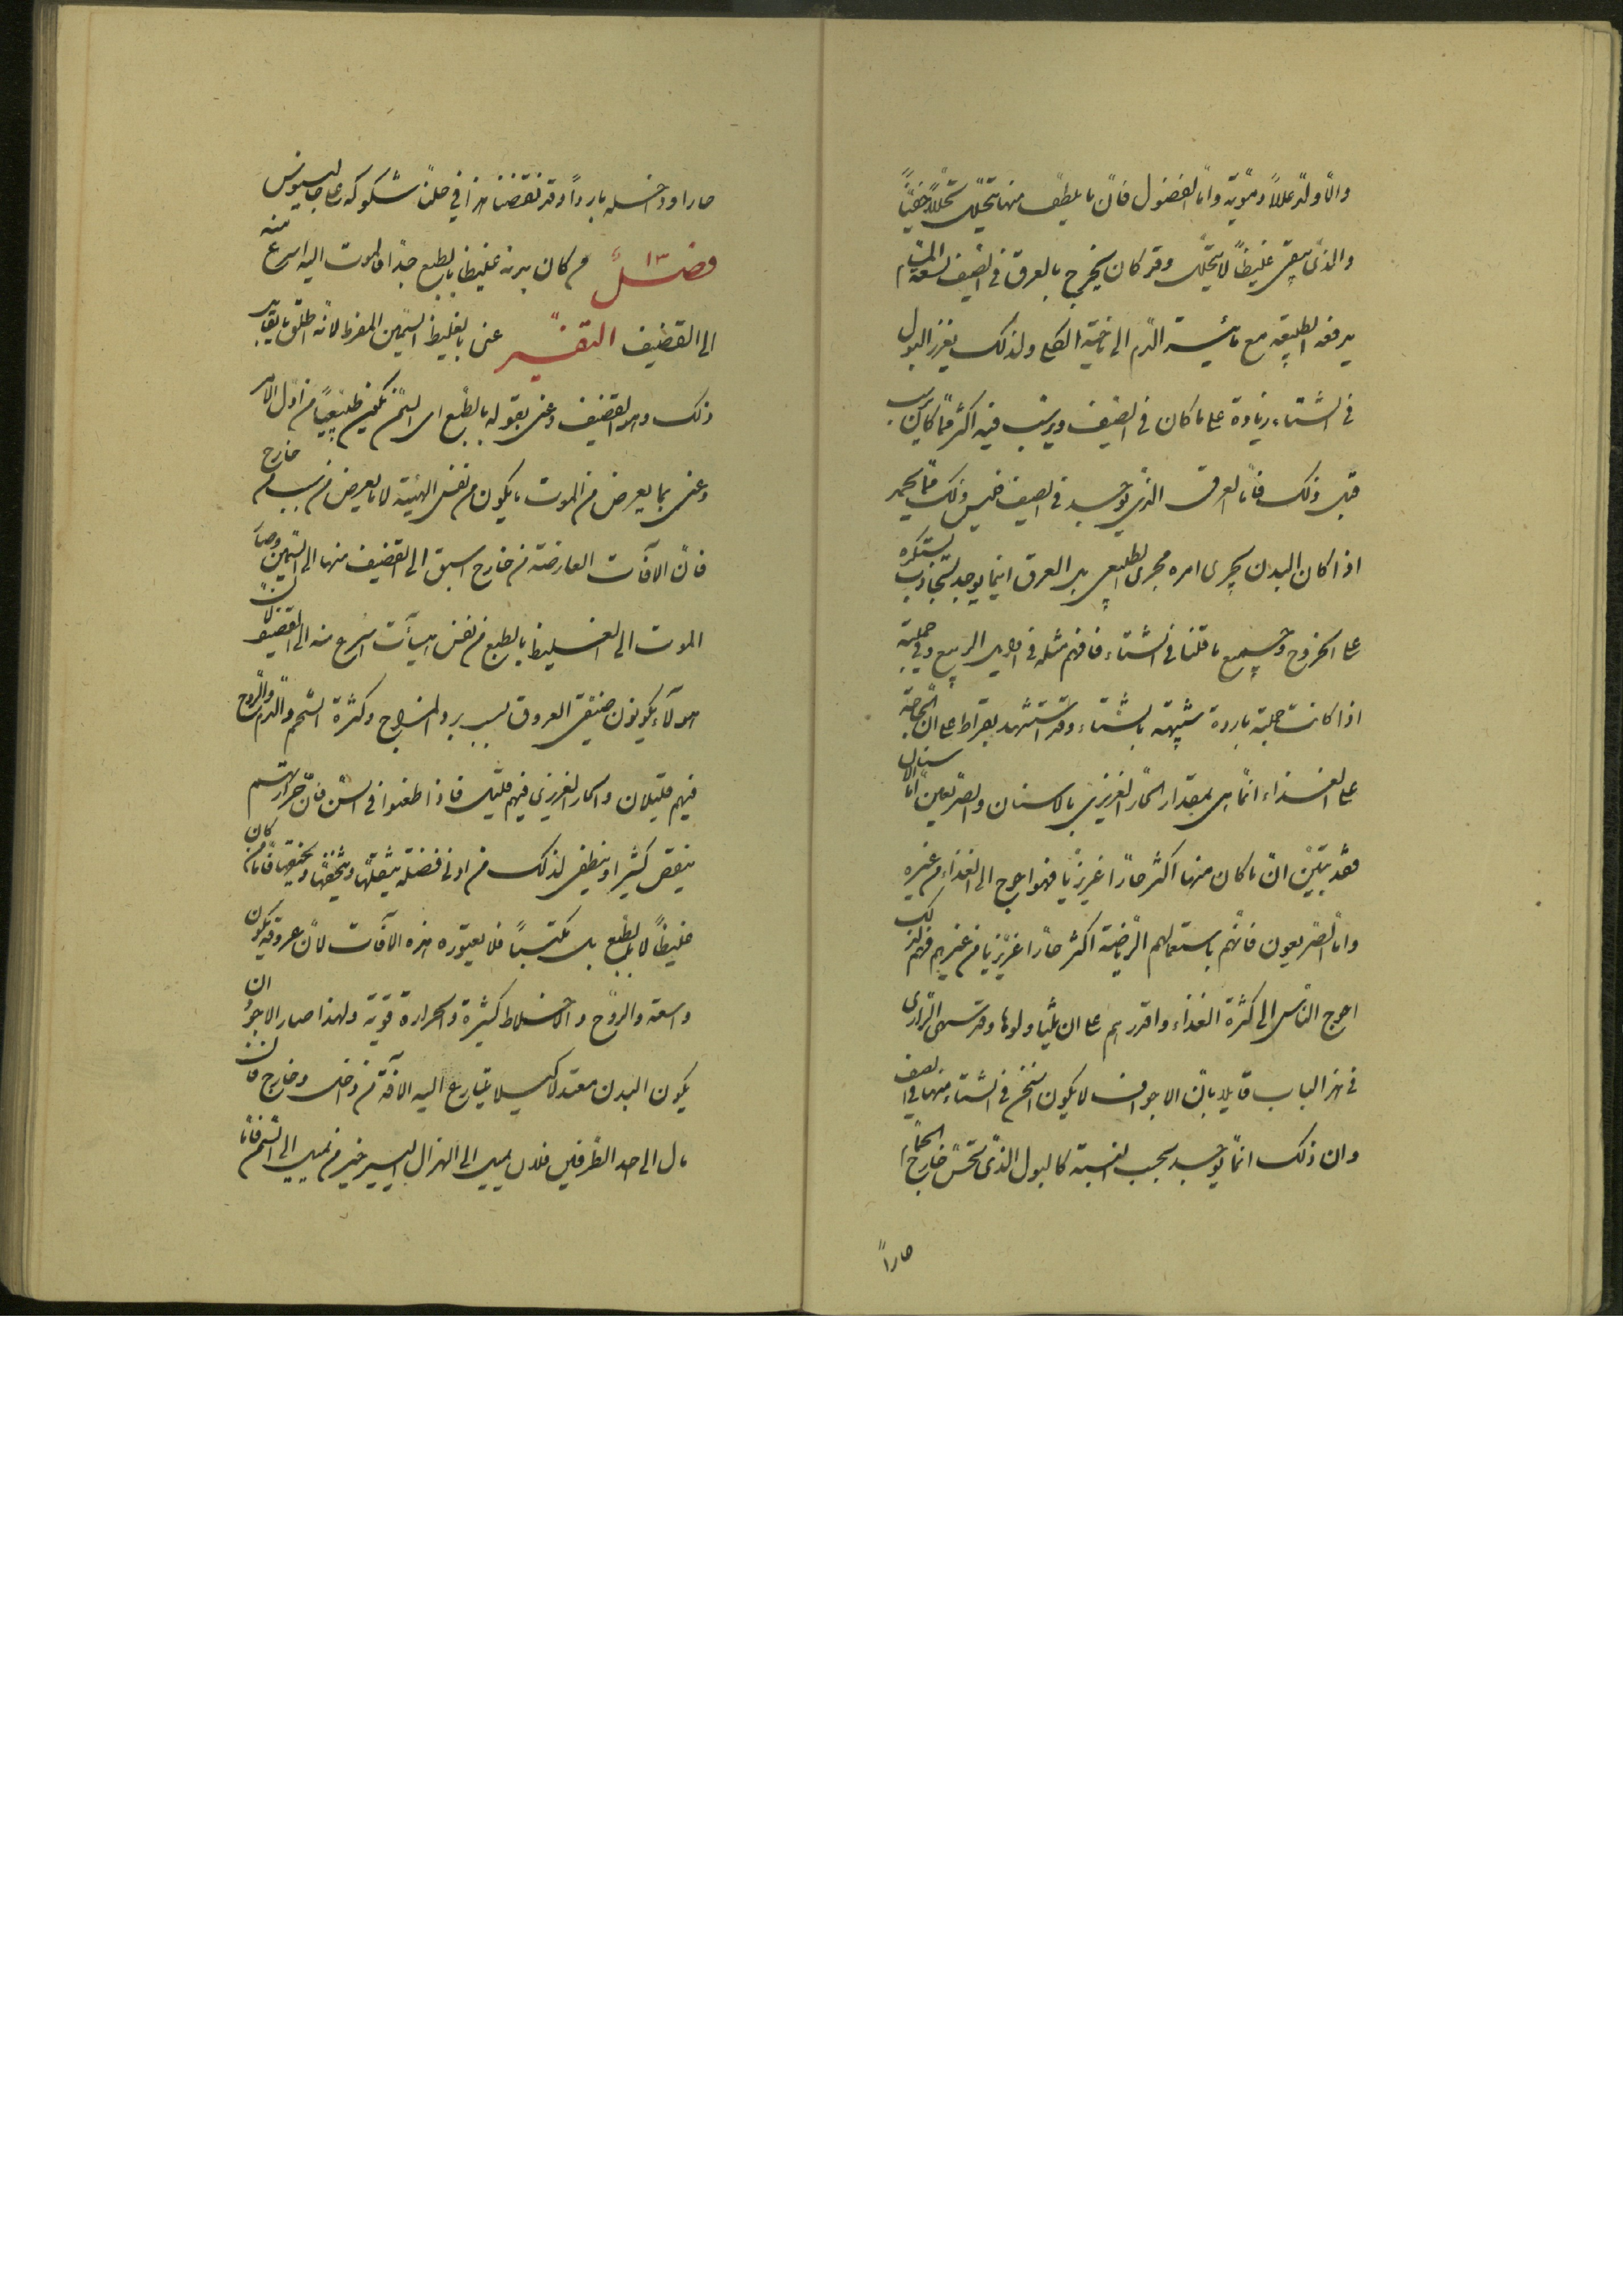 والا ولد عللاً دمويه واما الفضول فان ما يلطف منها يتحلل تحللا خفيا
والذي يبقى غليظا لا يتحلل وقد كان يخرج بالعرق في الصيف لسعة المسام
يدفعه الطبيعه مع مائية الدم الى ناحية الكلى ولذلك يغزر البول
في الشتاء زيادة على ما كان في الصيف ويرسب فيه اكثر مما كان يرسب
قبل ذلك فاما العرق الذي يوجد في الصيف فليس ذلك مما يحمد
اذا كان البدن يجرى امره مجرى الطبيعى بل العرق انما يوجد يستكره
على الخروج وجميع ما قلنا في الشتاء فافهم مثله في اوايل الربيع وفي جملته
اذا كانت جملته باردة شبيهة بالشتاء وقد استشهد بقراط على ان الحاجة
على الغذاء انما هى بمقدار الحار الغريزي بالاسنان والصريعين اما الاسنان
فقد تبين ان ما كان منها اكثر حارا غريزيا فهو احوج الى الغذاء من غيره
واما الصريعون فانهم باستعمالهم الرياضة اكثر حارا غريزيا من غيرهم فهم لذلك
احوج الناس الى كثرة الغذاء واقدرهم على ان يتناولوها وقد شك الرازى
في هذا الباب قايلا بان الاجواف لا يكون اسخن في الشتاء منها في الصيف
وان ذلك انما يوجد بحسب النسبة كالبول الذي تحس خارج الحمام
حاراً
حارا وداخله بارداً وقد نقضنا هذا في حلنا شكوكه على جالينوس
فصل ١٣ من كان بدنه غليظا بالطبع جدا فالموت اليه اسرع منه
الى القضيف التفسير عنى بالغليظ السمين المفرط لانه اطلق ما يقابل
ذلك وهو القضيف وعنى بقوله بالطبع اى السمن يكون طبيعياً من اول الامر
وعنى بما يعرض من الموت ما يكون من نفس الهيئة لا ما يعرض من سبب من خارج
فان الآفات العارضة من خارج اسبق الى القضيف منها الى السمين وصار
الموت الى الغليظ بالطبع من نفس الهيآت اسرع منه الى القضيف لان
هولآء يكونون ضيقى العروق بسبب برد المزاج وكثرة الشحم والدم والروح
فيهم قليلان والحار الغريزي فيهم قليل فاذا طعنوا في السن فان حرارتهم
ينقص كثيرا وينطفى لذلك من ادنى فضلة يثقلها ويخنقها فاما من كان
غليظاً لا بالطبع بل مكتسباً فلا يعتوره هذه الآفات لان عروقه يكون
واسعة والروح والاخلاط كثيرة والحرارة قوية ولهذا صار الاجود ان
يكون البدن معتدلا كيلا يتسارع اليه الآفة من داخل وخارج فان
مال الى احد الطرفين فلان يميل الى الهزال اليسير خير من ان يميل الى السمن فاما